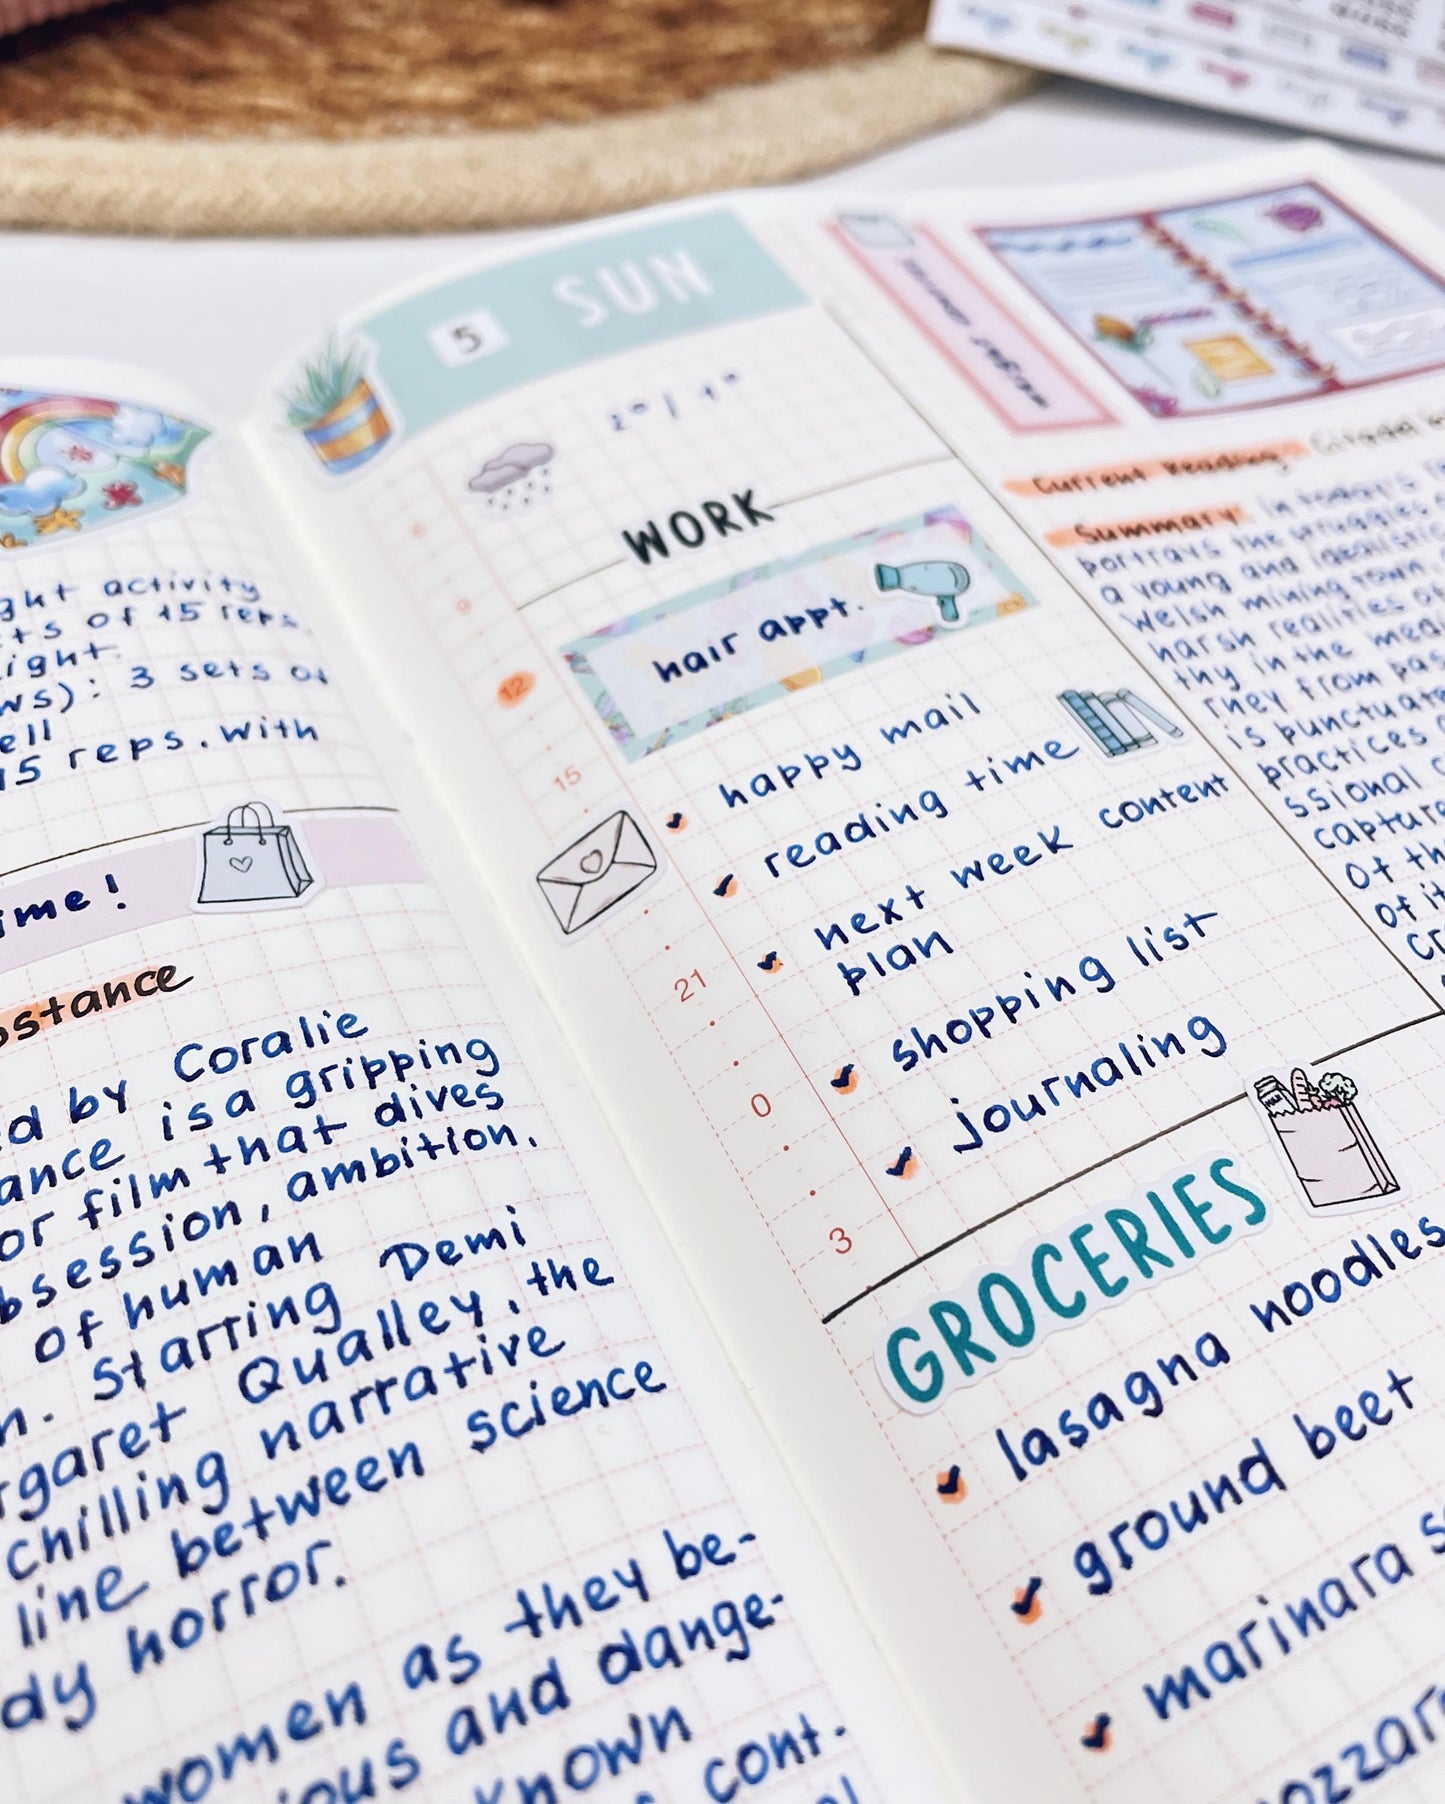 ght activity
ts of 15 reps.
ight.
ws): 3 sets of
ell
15 reps. with
ime!
bstance
ed by Coralie
ance is a gripping
or film that dives
bsession, ambition,
of human
n. Starring Demi
rgaret Qualley, the
chilling narrative
line between science
dy horror.
women as they be-
ious and dange-
known
cont.
5 SUN
WORK
hair appt.
happy mail
reading time
next week content
plan
shopping list
journaling
12
15
21
0
3
GROCERIES
lasagna noodles
ground beet
marinara s
ozzar
Current Reading: Citadel
Summary: In today's
portrays the struggles
a young and idealistic
Welsh mining town.
harsh realities
thy in the med
rney from pas
is punctuate
practices
ssional
capture
of th
of it
cr